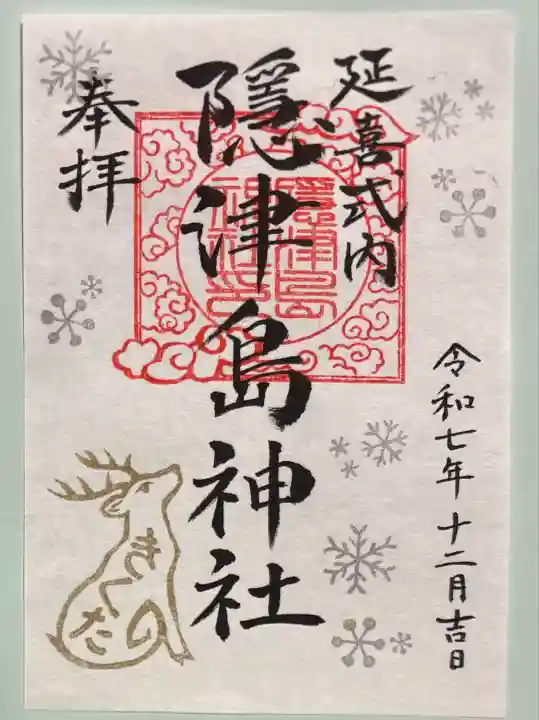 延喜式内
奉拝
隠津島神社
隠津島
神社印
令和七年十二月吉日
きくたの